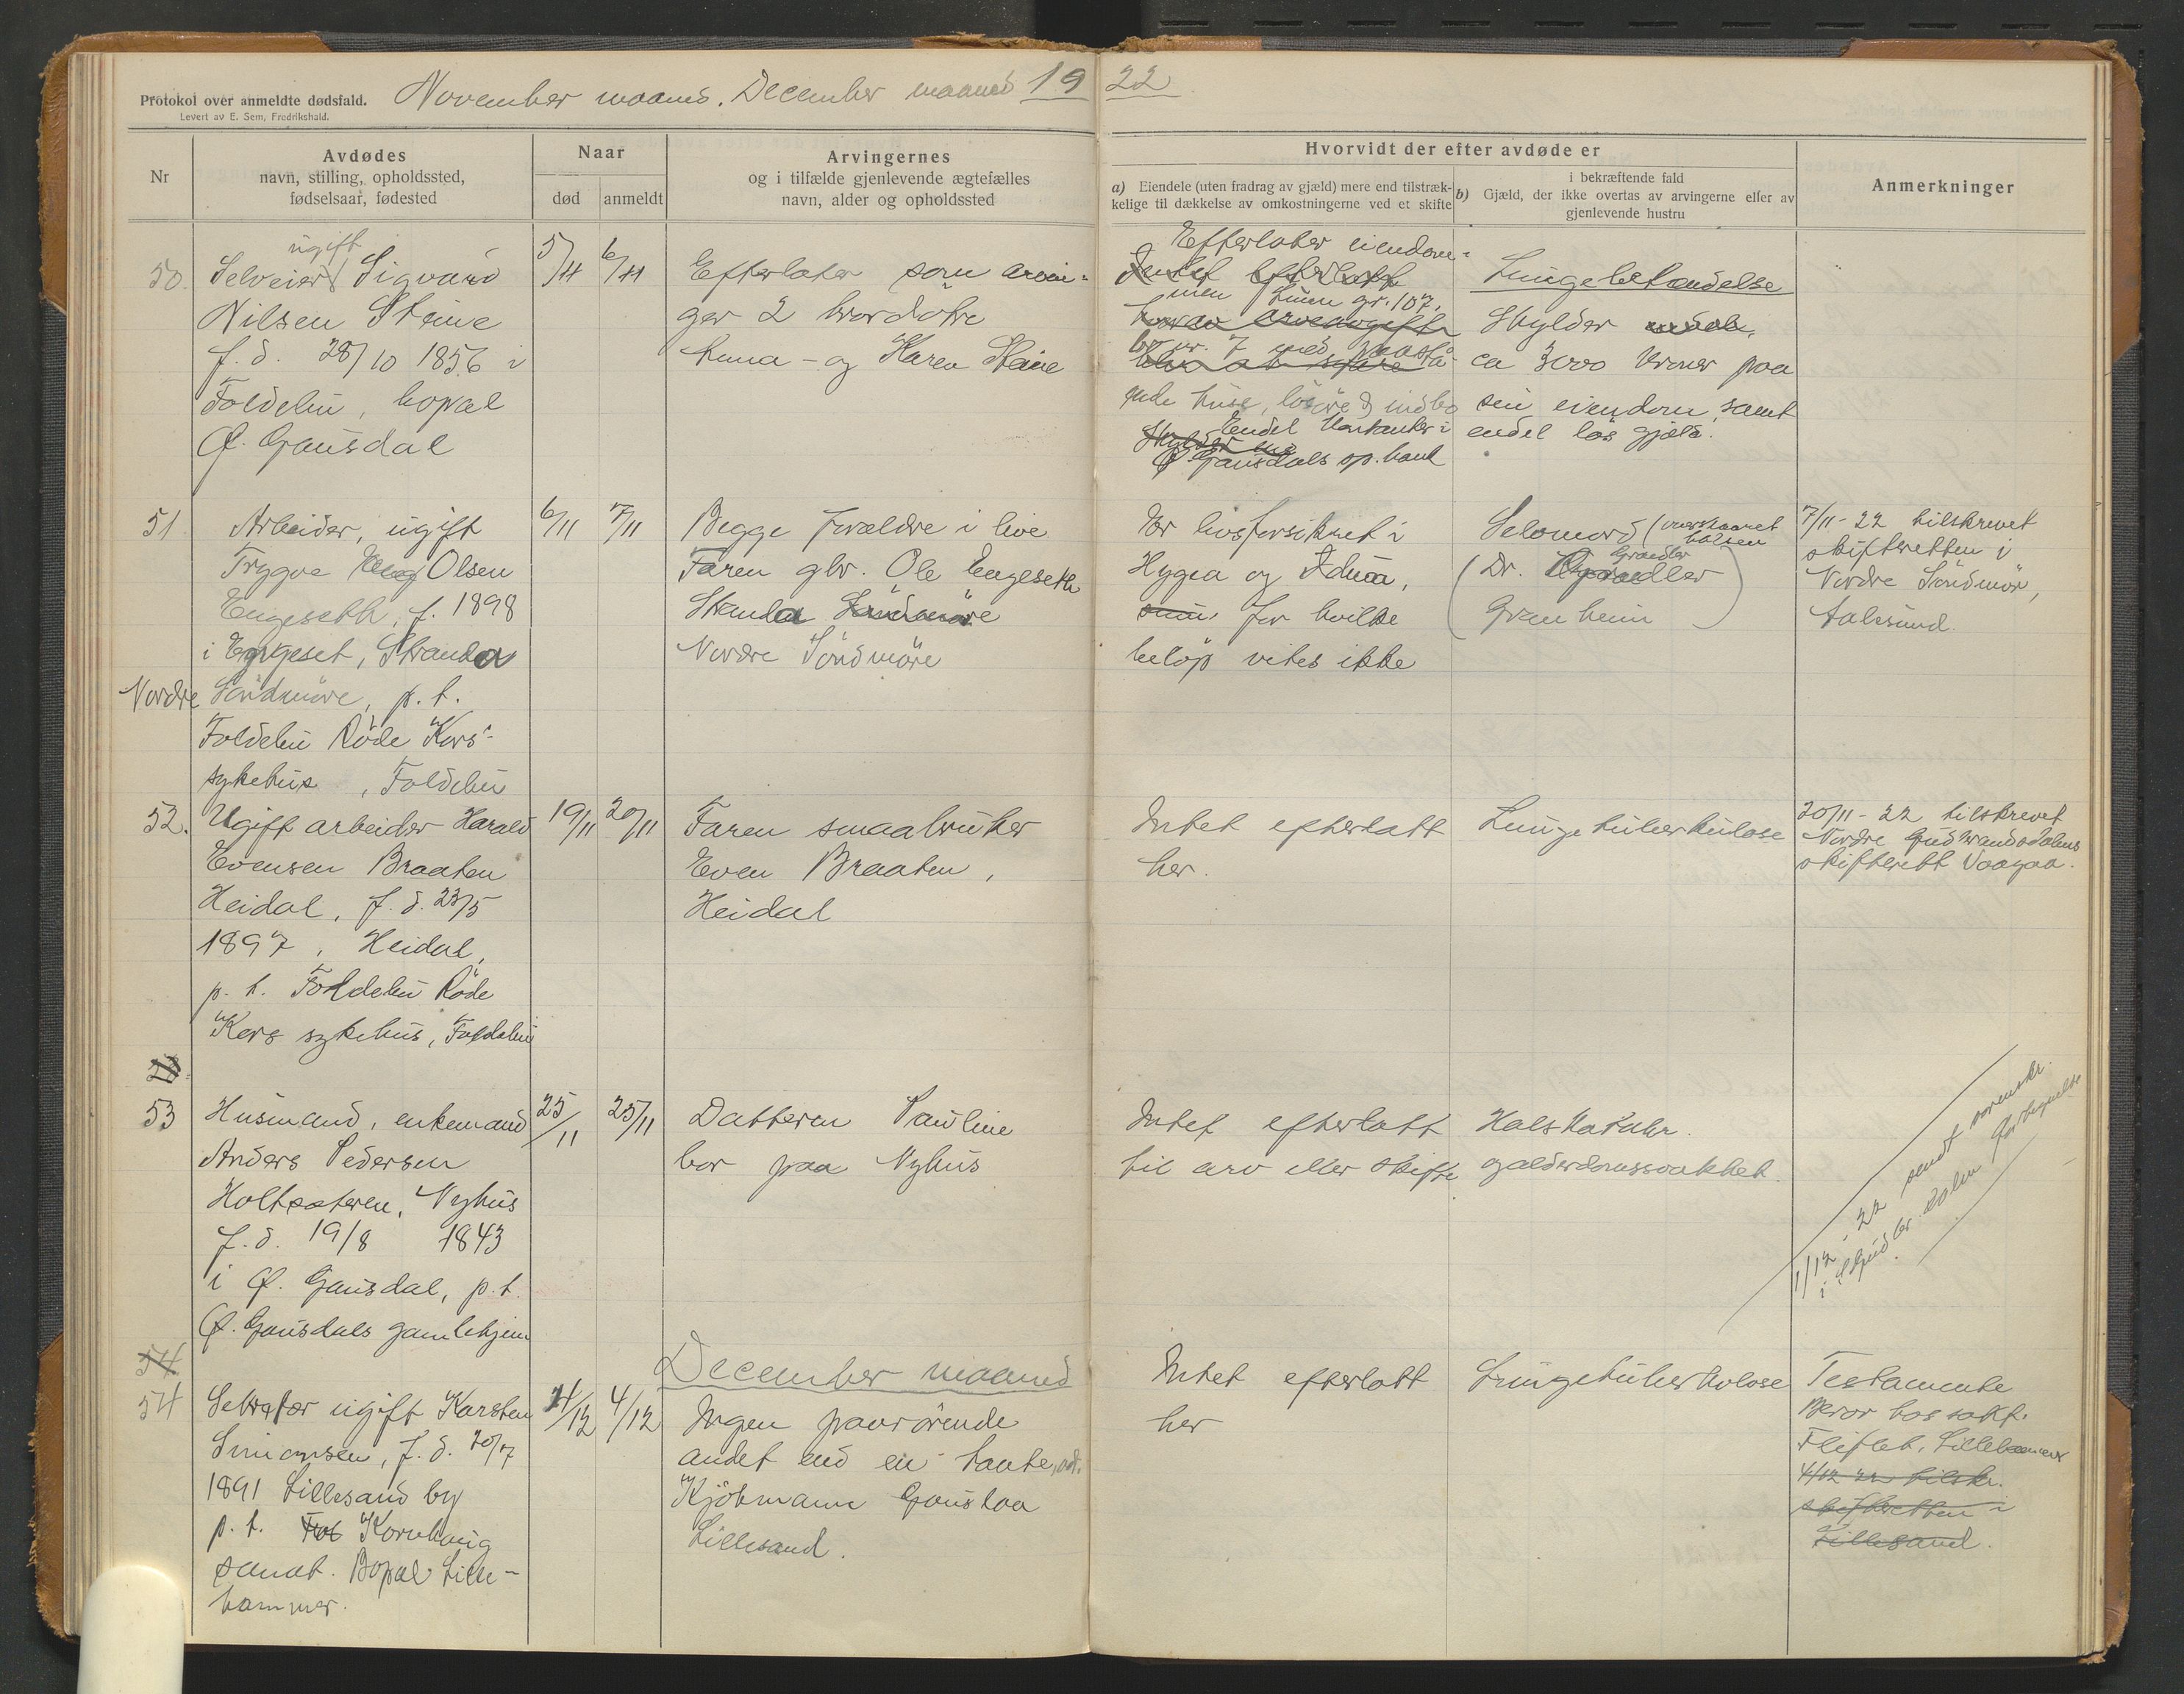 Protokol over anmeldte dødsfald.
Levert av E. Sem, Fredrikshald.
November maaned. December maaned 1922
Nr
Avdødes
navn, stilling, opholdssted,
fødselsaar, fødested
Naar
død
anmeldt
Arvingernes
og i tilfælde gjenlevende ægtefælles
navn, alder og opholdssted
Hvorvidt der efter avdøde er
a) Eiendele (uten fradrag av gjæld) mere end tilstræk-
kelige til dækkelse av omkostningerne ved et skifte
i bekræftende fald
b) Gjæld, der ikke overtas av arvingerne eller av
gjenlevende hustru
Anmerkninger
50.
ugift
Selveier Sigvard
Nilsen Steine
f. d. 28/10 1856 i
Foldebu, bopæl
Ø. Gausdal
5/11
6/11
Efterlater som arvin-
ger 2 brordøtre
og Karen Steine
Efterlater eiendom-
Intet efterlatt
gr. 107,
br. nr. 7 med paastå-
ende huse, løsøre & indbo
Endel kontanter i
Ø. Gausdals sp. bank
Lungebetændelse
Skylder
ca 3000 kroner paa
sin eiendom samt
endel løs gjæld.
51
Arbeider, ugift
Trygve Olsen
Engeseth, f. 1898
i Engeset, Stranda
Nordre Söndmöre, p. t.
Foldebu Röde Kors-
sykehus, Foldebu
6/11
7/11
Begge forældre i live
Faren gbr. Ole Engeseth
Stranda Söndmöre
Nordre Söndmöre
Er livsforsikret i
Hygea og Iduna,
for hvilke
belöp vites ikke
Selvmord (overskaaret
halsen
(Dr. Grändler
Granheim)
7/11-22 tilskrevet
skifteretten i
Nordre Söndmör,
Aalesund.
52.
Ugift arbeider Harald
Evensen Braaten
Heidal, f. d. 23/5
1897, Heidal,
p. t. Foldebu Röde
Kors sykehus, Foldebu
19/11
20/11
Faren smaabruker
Even Braaten,
Heidal
Intet efterlatt
her.
Lungetuberkulose
20/11-22 tilskrevet
Nordre Gudbrandsdalens
skifterett Vaagaa.
53
Husmand, enkemand
Anders Pedersen
Holtsæteren, Nyhus
f. d. 19/8 1843
i Ø. Gausdal, p. t.
Ø. Gausdals gamlehjem
25/11
25/11
Datteren Pauline
bor paa Nyhus
Intet efterlatt
til arv eller skifte
Halskatahr.
og alderdomssvakhet.
1/12-22 sendt sorenskr.
i S. Gudbr.dalen fortegnelse
December maaned
54
54
Sekretær ugift Karsten
Simonsen, f. d. 20/7
1891 Lillesand by
p. t. Kornhaug
sanat. Bopæl Lille-
hammer.
4/12
4/12
Ingen paarörende
andet end en tante, adr.
Kjöbmann
Lillesand.
Intet efterlatt
her
Lungetuberkulose
Testamente
beror hos sakf.
Fliflet, Lillehammer
4/12 22 tilskr.
skifteretten i
Lillesand.